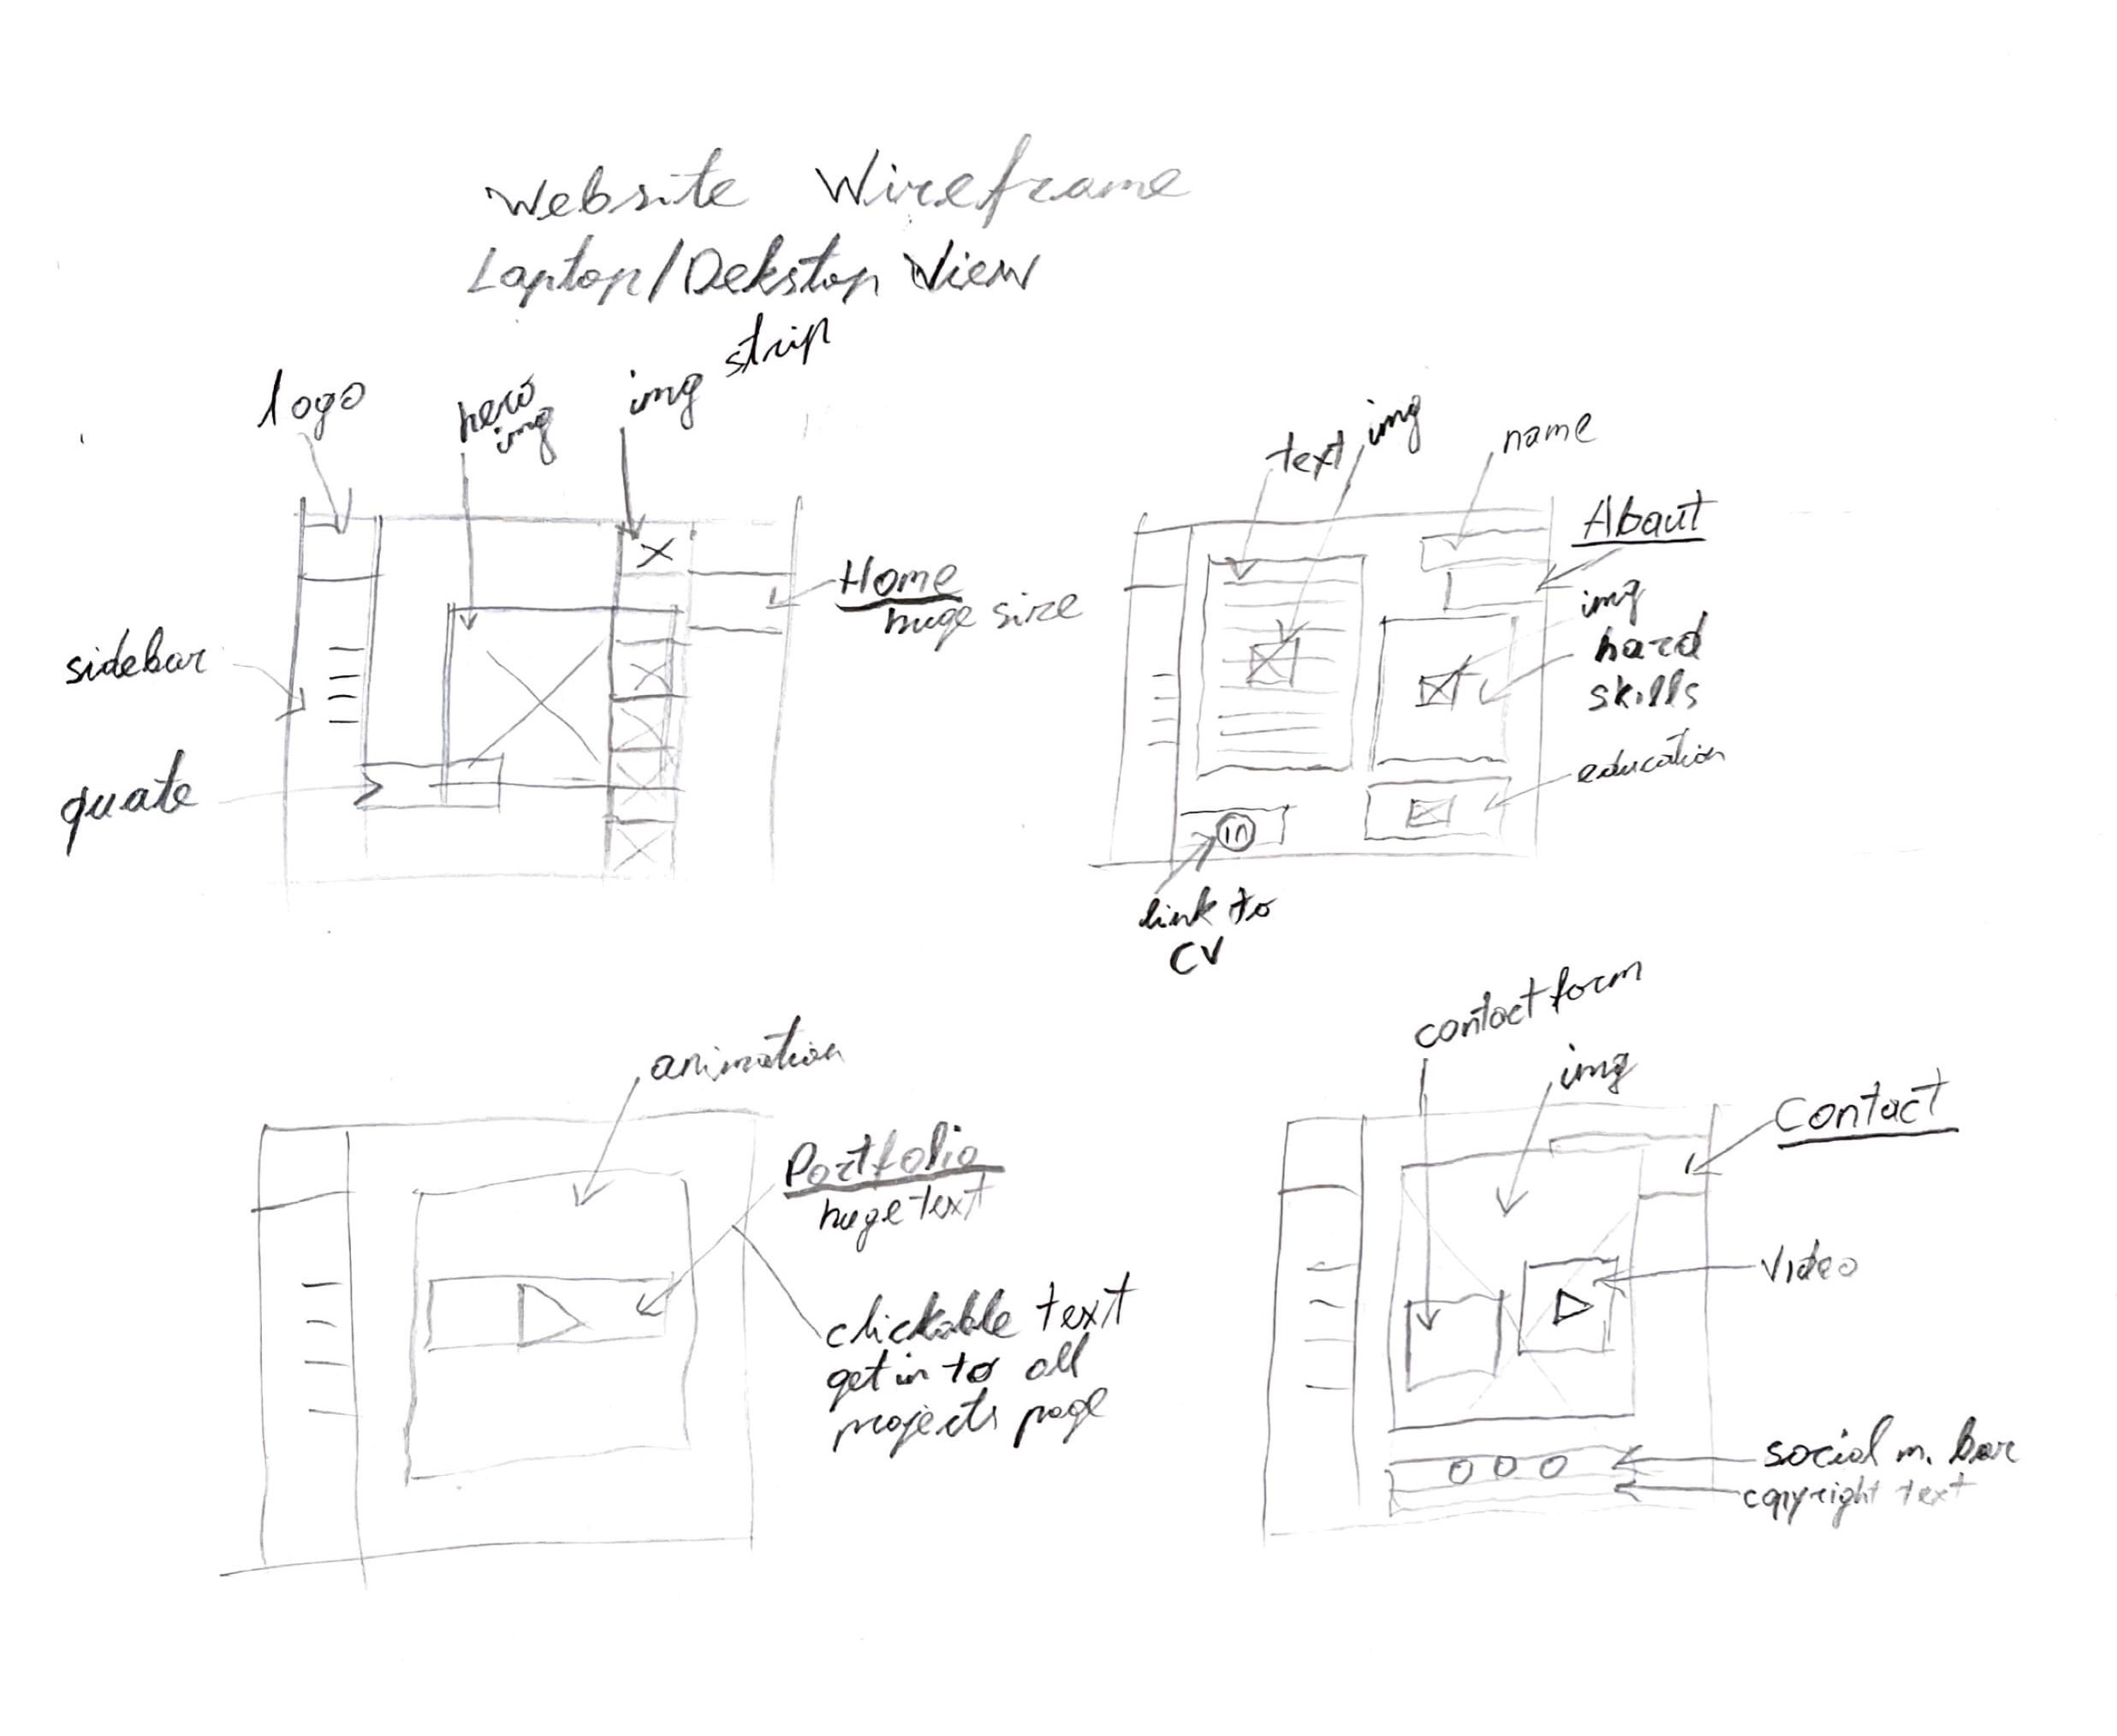 Website Wireframe
Laptop/Dekstop View
logo
hero
img
img strip
Home
huge size
sidebar
quate
text
img
name
Abaut
img
hard
skills
education
in
link to
CV
animation
Portfolio
huge text
clickable text
get in to all
projects page
contact form
img
Contact
Video
social m. bar
copyright text